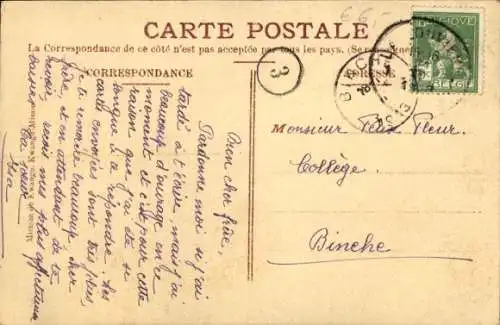 CARTE POSTALE
La Correspondance de ce côté n'est pas acceptée par tous les pays. (Se renseigner
CORRESPONDANCE
ADRESSE
3
€6,-
BELGIE
Monsieur Felix Fleur.
Collège.
Binche
Bien cher frère,
Pardonne moi si j'ai
tardé à t'écrire, mais j'ai
beaucoup d'ouvrage en ce
moment et c'est pour cette
raison que j'ai été si
longue à te répondre.
Les cartes envoyées sont très jolies,
je te remercie beaucoup, cher
frère, et en attendant de te
revoir, reçois mes plus affectueux
baisers
Ta sœur